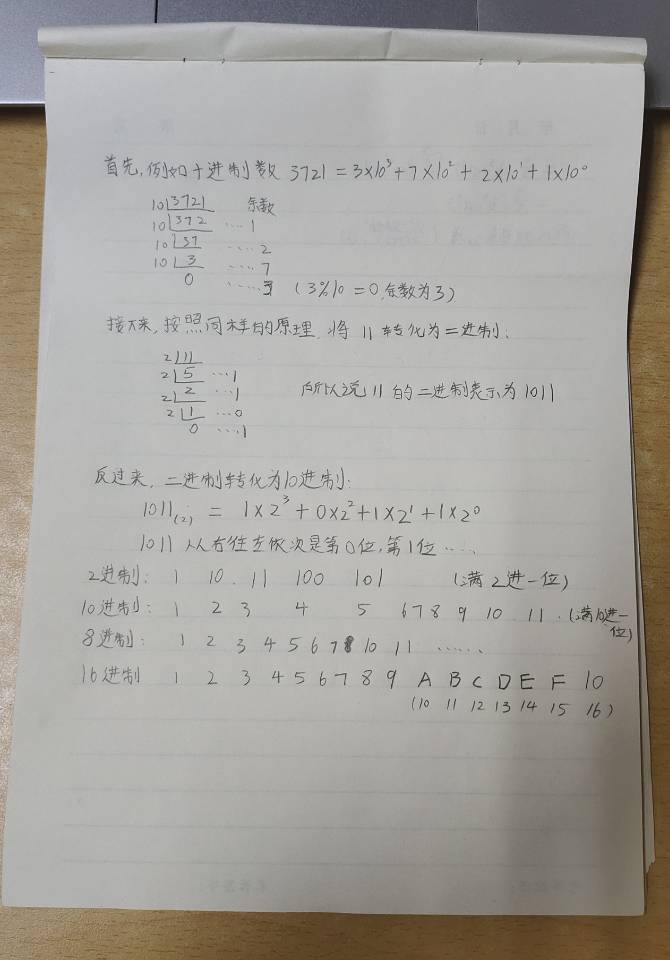 首先,例如十进制数 3721 = 3×10³+7×10²+ 2×10¹+1×10⁰
10 3721 余数
10 372 ···· 1
10 37 ····· 2
10 3 ····· 7
0 ······3 (3%10 =0,余数为3)
接下来,按照同样的原理,将 11 转化为二进制:
2 11
2 5 ···1
2 2 ···1 所以说 11 的二进制表示为 1011
2 1 ···0
0 ····1
反过来,二进制转化为10进制:
1011(2) = 1×2³+0×2²+1×2¹+1×2⁰
1011 从右往左依次是第0位,第1位 ·····
2进制: 1 10 11 100 101 (满2进一位)
10进制: 1 2 3 4 5 6 7 8 9 10 11 . (满10进一
位)
8进制: 1 2 3 4 5 6 7 10 11 ······
16进制 1 2 3 4 5 6 7 8 9 A B C D E F 10
(10 11 12 13 14 15 16)